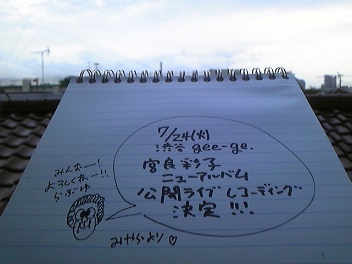 7/24(火)
渋谷 gee-ge.
宮良彩子
ニューアルバム
公開ライブレコーディング
決定!!!
みんなー!
よろしくねー!!
らぶゆ
みやらより♡